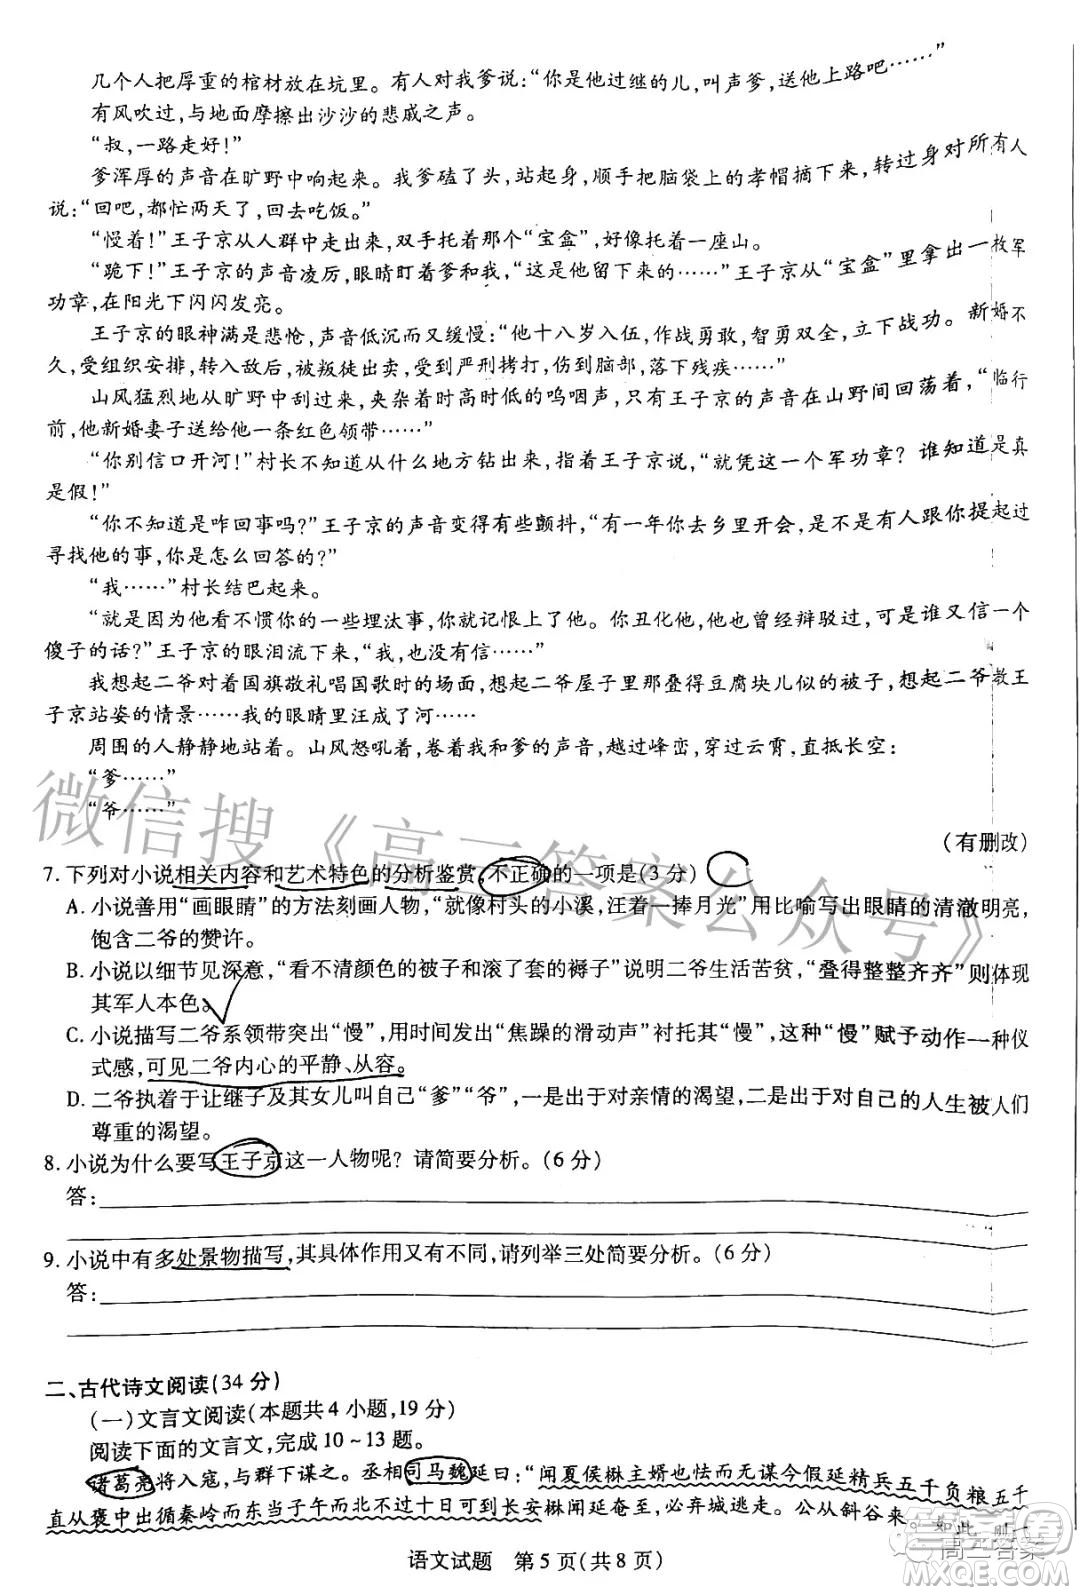 几个人把厚重的棺材放在坑里。有人对我爹说：“你是他过继的儿，叫声爹，送他上路吧……”
有风吹过，与地面摩擦出沙沙的悲戚之声。
“叔，一路走好！”
爹浑厚的声音在旷野中响起来。我爹磕了头，站起身，顺手把脑袋上的孝帽摘下来，转过身对所有人
说：“回吧，都忙两天了，回去吃饭。”
“慢着！”王子京从人群中走出来，双手托着那个“宝盒”，好像托着一座山。
“跪下！”王子京的声音凌厉，眼睛盯着爹和我，“这是他留下来的……”王子京从“宝盒”里拿出一枚军
功章，在阳光下闪闪发亮。
王子京的眼神满是悲怆，声音低沉而又缓慢：“他十八岁入伍，作战勇敢，智勇双全，立下战功。新婚不
久，受组织安排，转入敌后，被叛徒出卖，受到严刑拷打，伤到脑部，落下残疾……”
山风猛烈地从旷野中刮过来，夹杂着时高时低的呜咽声，只有王子京的声音在山野间回荡着，“临行
前，他新婚妻子送给他一条红色领带……”
“你别信口开河！”村长不知道从什么地方钻出来，指着王子京说，“就凭这一个军功章？谁知道是真
是假！”
“你不知道是咋回事吗？”王子京的声音变得有些颤抖，“有一年你去乡里开会，是不是有人跟你提起过
寻找他的事，你是怎么回答的？”
“我……”村长结巴起来。
“就是因为他看不惯你的一些埋汰事，你就记恨上了他。你丑化他，他也曾辩驳过，可是谁又信一个
傻子的话？”王子京的眼泪流下来，“我，也没有信……”
我想起二爷对着国旗敬礼唱国歌时的场面，想起二爷屋子里那叠得豆腐块儿似的被子，想起二爷教王
子京站姿的情景……我的眼睛里汪成了河……
周围的人静静地站着。山风怒吼着，卷着我和爹的声音，越过峰峦，穿过云霄，直抵长空：
“爹……”
“爷……”
（有删改）
微信搜《高三答案公众号》
7. 下列对小说相关内容和艺术特色的分析鉴赏，不正确的一项是（3 分）
A. 小说善用“画眼睛”的方法刻画人物，“就像村头的小溪，汪着一捧月光”用比喻写出眼睛的清澈明亮，
饱含二爷的赞许。
B. 小说以细节见深意，“看不清颜色的被子和滚了套的褥子”说明二爷生活苦贫，“叠得整整齐齐”则体现
其军人本色。
C. 小说描写二爷系领带突出“慢”，用时间发出“焦躁的滑动声”衬托其“慢”，这种“慢”赋予动作一种仪
式感，可见二爷内心的平静、从容。
D. 二爷执着于让继子及其女儿叫自己“爹”“爷”，一是出于对亲情的渴望，二是出于对自己的人生被人们
尊重的渴望。
8. 小说为什么要写王子京这一人物呢？请简要分析。（6 分）
答：
9. 小说中有多处景物描写，其具体作用又有不同，请列举三处简要分析。（6 分）
答：
二、古代诗文阅读（34 分）
（一）文言文阅读（本题共 4 小题，19 分）
阅读下面的文言文，完成 10～13 题。
诸葛亮将入寇，与群下谋之。丞相司马魏延曰：“闻夏侯楙主婿也怯而无谋今假延精兵五千负粮五千
直从褒中出循秦岭而东当子午而北不过十日可到长安楙闻延奄至，必弃城逃走。公从斜谷来。如此，则一
语文试题 第 5 页（共 8 页）
答案圈
高三答案
MXQE.COM